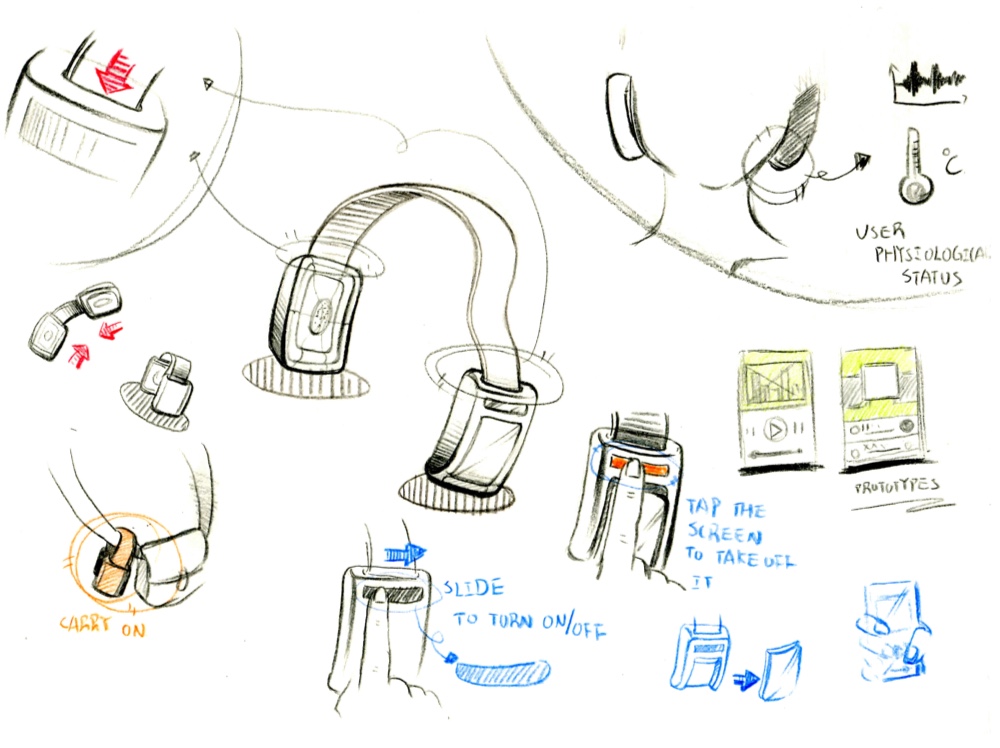 °C
USER
PHYSIOLOGICAL
STATUS
PROTOTYPES
TAP THE
SCREEN
TO TAKE OFF
IT
SLIDE
TO TURN ON/OFF
CARRY ON